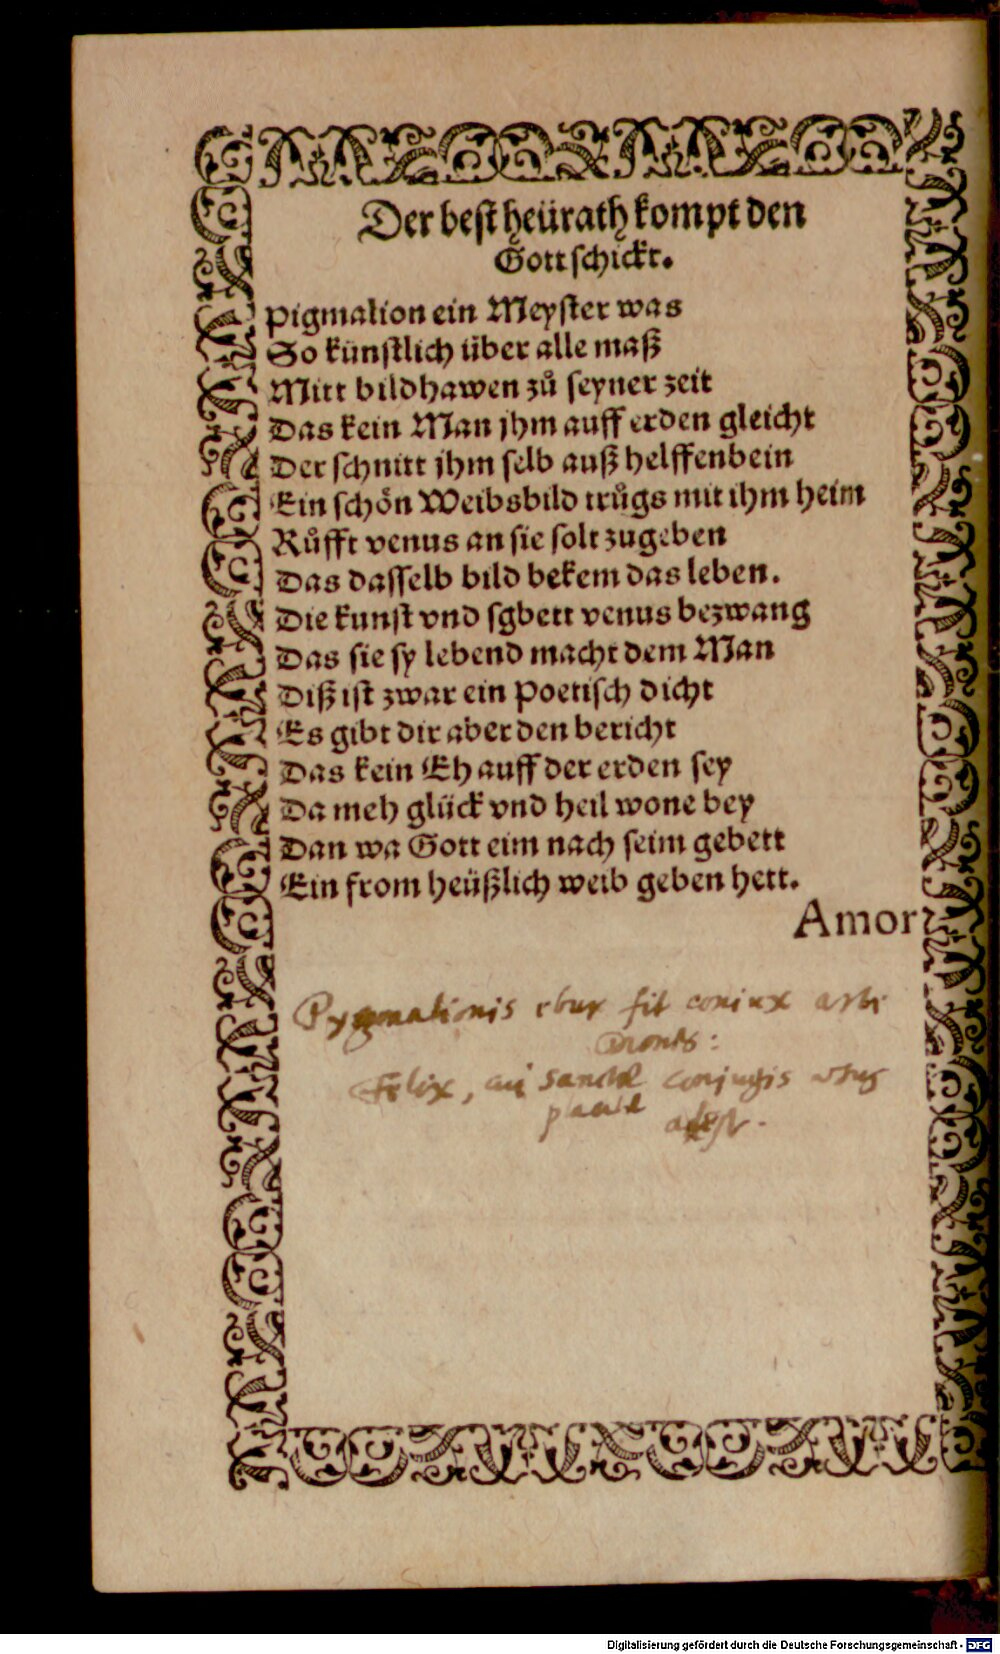 Der best heürath kompt den
Gott schickt.
Pigmalion ein Meyster was
So künstlich über alle maß
Mitt bildhawen zů seyner zeit
Das kein Man jhm auff erden gleicht
Der schnitt jhm selb auß helffenbein
Ein schön Weibsbild trůgs mit ihm heim
Růfft venus an sie solt zugeben
Das dasselb bild bekem das leben.
Die kunst vnd sgbett venus bezwang
Das sie sy lebend macht dem Man
Diß ist zwar ein Poetisch dicht
Es gibt dir aber den bericht
Das kein Eh auff der erden sey
Da meh glück vnd heil wone bey
Dan wa Gott eim nach seim gebett
Ein from heüßlich weib geben hett.
Amor
Pygmalionis ebur fit coniux
Felix, cui sanctæ conjugis usus
adest.
Digitalisierung gefördert durch die Deutsche Forschungsgemeinschaft - DFG